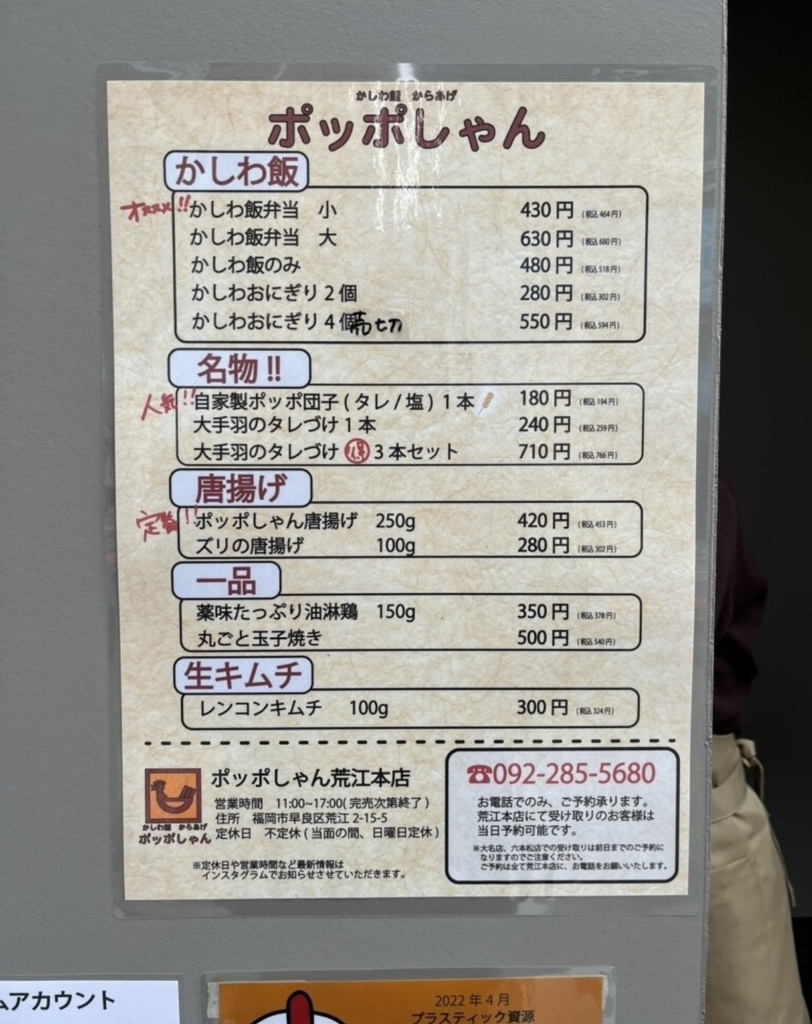 かしわ飯 からあげ
ポッポしゃん
かしわ飯
オススメ!!
かしわ飯弁当 小 430円 (税込464円)
かしわ飯弁当 大 630円 (税込680円)
かしわ飯のみ 480円 (税込518円)
かしわおにぎり2個 280円 (税込302円)
かしわおにぎり4個 売切 550円 (税込594円)
名物!!
人気!!
自家製ポッポ団子(タレ/塩)1本 180円 (税込194円)
大手羽のタレづけ1本 240円 (税込259円)
大手羽のタレづけ 得 3本セット 710円 (税込766円)
唐揚げ
定番!!
ポッポしゃん唐揚げ 250g 420円 (税込453円)
ズリの唐揚げ 100g 280円 (税込302円)
一品
薬味たっぷり油淋鶏 150g 350円 (税込378円)
丸ごと玉子焼き 500円 (税込540円)
生キムチ
レンコンキムチ 100g 300円 (税込324円)
かしわ飯 からあげ
ポッポしゃん
ポッポしゃん荒江本店
営業時間 11:00~17:00(完売次第終了)
住所 福岡市早良区荒江2-15-5
定休日 不定休(当面の間、日曜日定休)
※定休日や営業時間など最新情報は
インスタグラムでお知らせさせていただきます。
☎092-285-5680
お電話でのみ、ご予約承ります。
荒江本店にて受け取りのお客様は
当日予約可能です。
※大名店、六本松店での受け取りは前日までのご予約に
なりますのでご注意ください。
ご予約は全て荒江本店に、お電話をお願いいたします。
ムアカウント
2022年4月
プラスティック資源